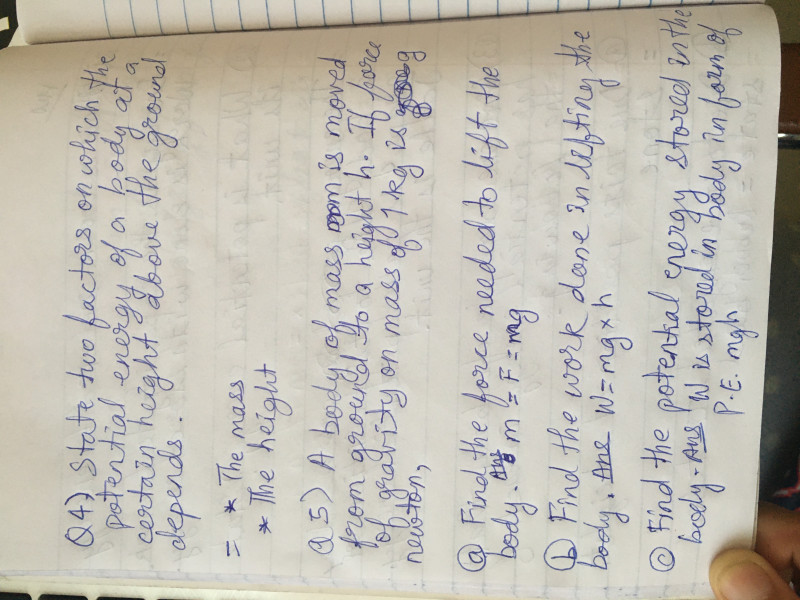 Q4) State two factors on which the
potential energy of a body at a
certain height above the ground
depends.
= * The mass
* The height
Q5) A body of mass m is moved
from ground to a height h. If force
of gravity on mass of 1 kg is g
newton,
(a) Find the force needed to lift the
body. Ans m = F = mg
(b) Find the work done in lifting the
body. Ans W = mg × h
(c) Find the potential energy stored in the
body. Ans W is stored in body in form of
P.E. mgh